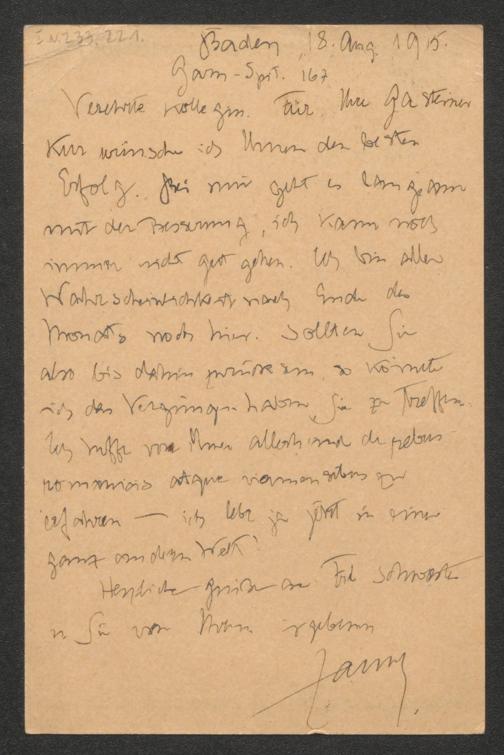 I.N. 233.221.
Baden, 18. Aug. 1915.
Garn-Spit. 167
Verehrte Kollegin. Für Ihre Gasteiner
Kur wünsche ich Ihnen den besten
Erfolg. Bei mir geht es langsam
mit der Besserung, ich kann noch
immer nicht gut gehen. Ich bin aller
Wahrscheinlichkeit nach Ende des
Monats noch hier. Sollten Sie
also bis dahin zurück sein, so könnte
ich das Vergnügen haben, Sie zu treffen.
Ich hoffe von Ihnen allerhand de rebus
romanicis atque viennensibus zu
erfahren — ich lebe ja jetzt in einer
ganz andern Welt!
Herzliche Grüße an Frl
u Sie von Ihrem ergebenen